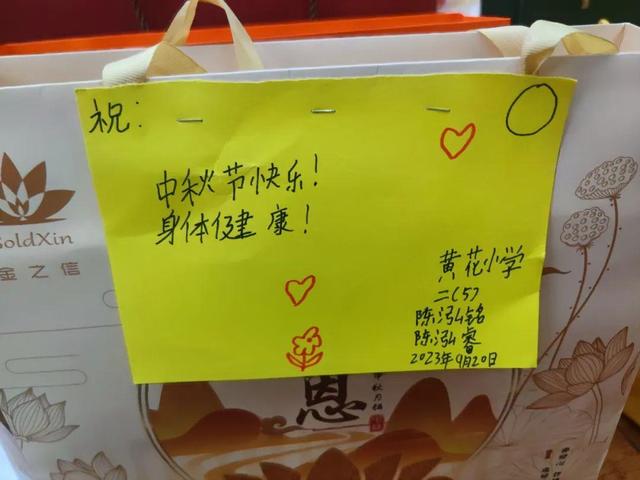 祝：
中秋节快乐！
身体健康！
黄花小学
二（5）
陈泓铭
陈泓睿
2023年9月20日
GoldXin
金之信
恩
中秋月饼